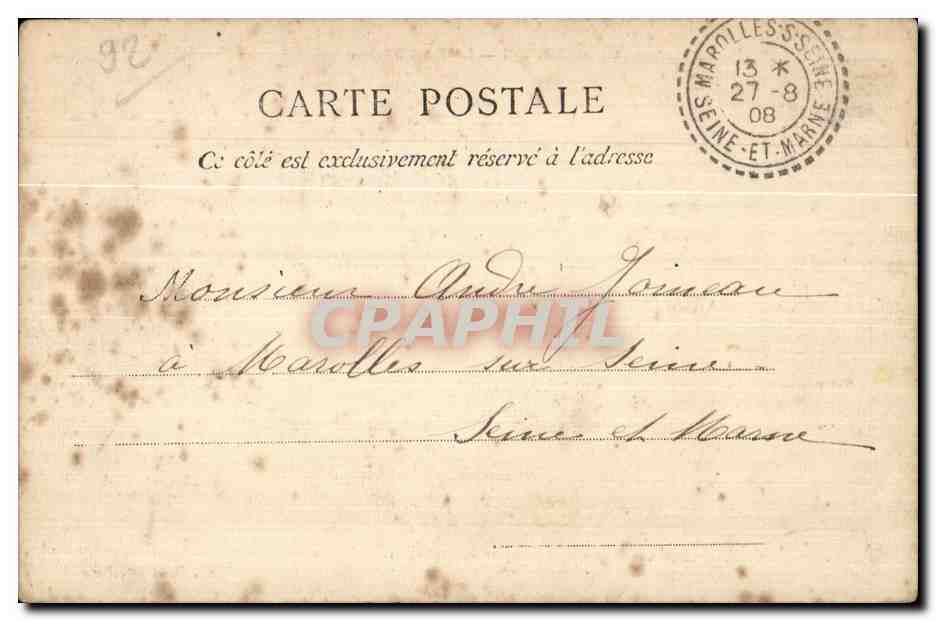 92
CARTE POSTALE
Ce côté est exclusivement réservé à l'adresse
MAROLLES-S-SEINE
13 *
27 -8
08
SEINE-ET-MARNE
Monsieur André Joineau
à Marolles sur Seine.
Seine et Marne
CPAPHIL